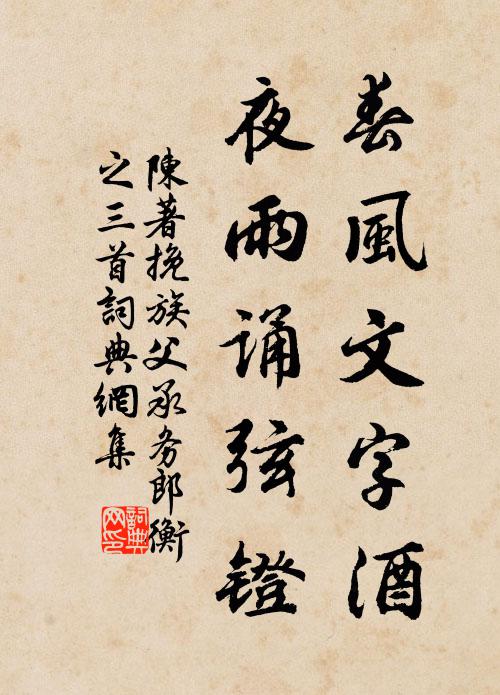 春風文字酒
夜雨诵弦镫
陳著挽族父承务郎衡
之三首詞典網集
詞典网印